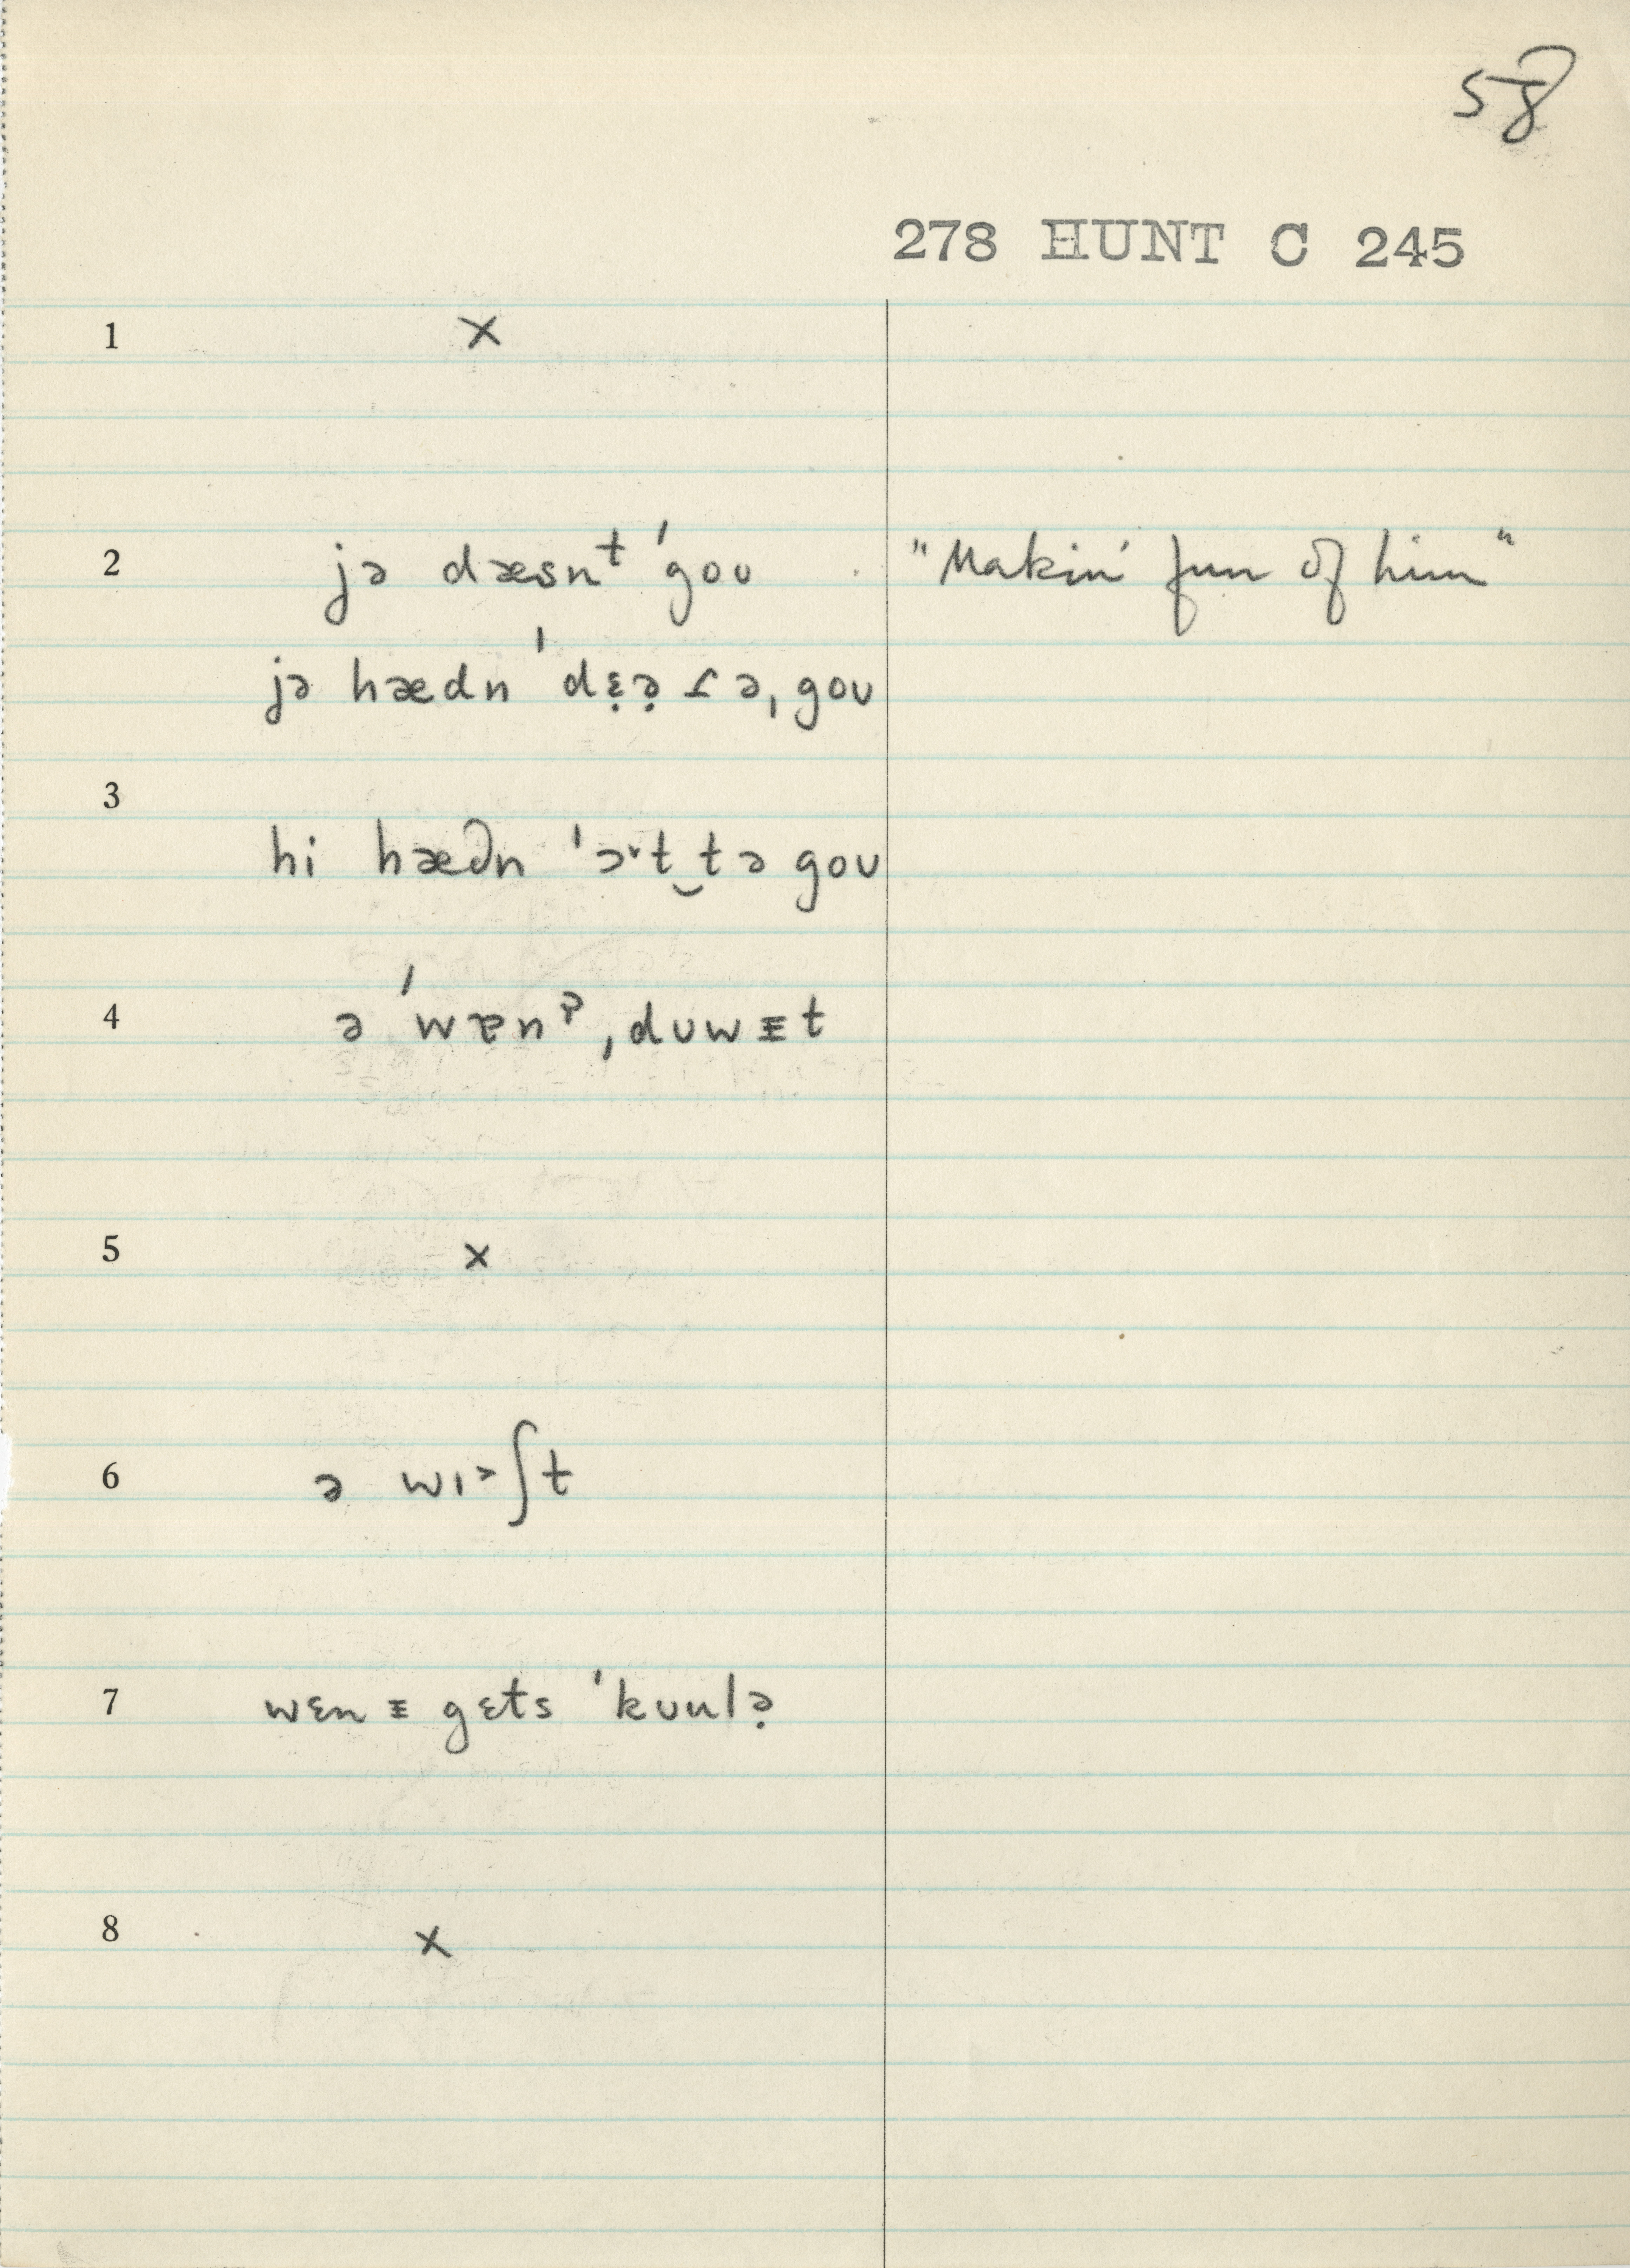 58
278 HUNT C 245
1 ×
2 jə dæsnᵗ ˈgoʊ "Makin' fun of him"
jə hædn ˈdɛ̣ə̣ ɾ ə ˌgoʊ
3
hi hædn ˈɔ˞t‿tə goʊ
4 ə ˈwɐnˀ ˌdʊwᵻt
5 ×
6 ə wɪ˃ʃt
7 wɛn ᵻ gɛts ˈkʊulə̣
8 ×